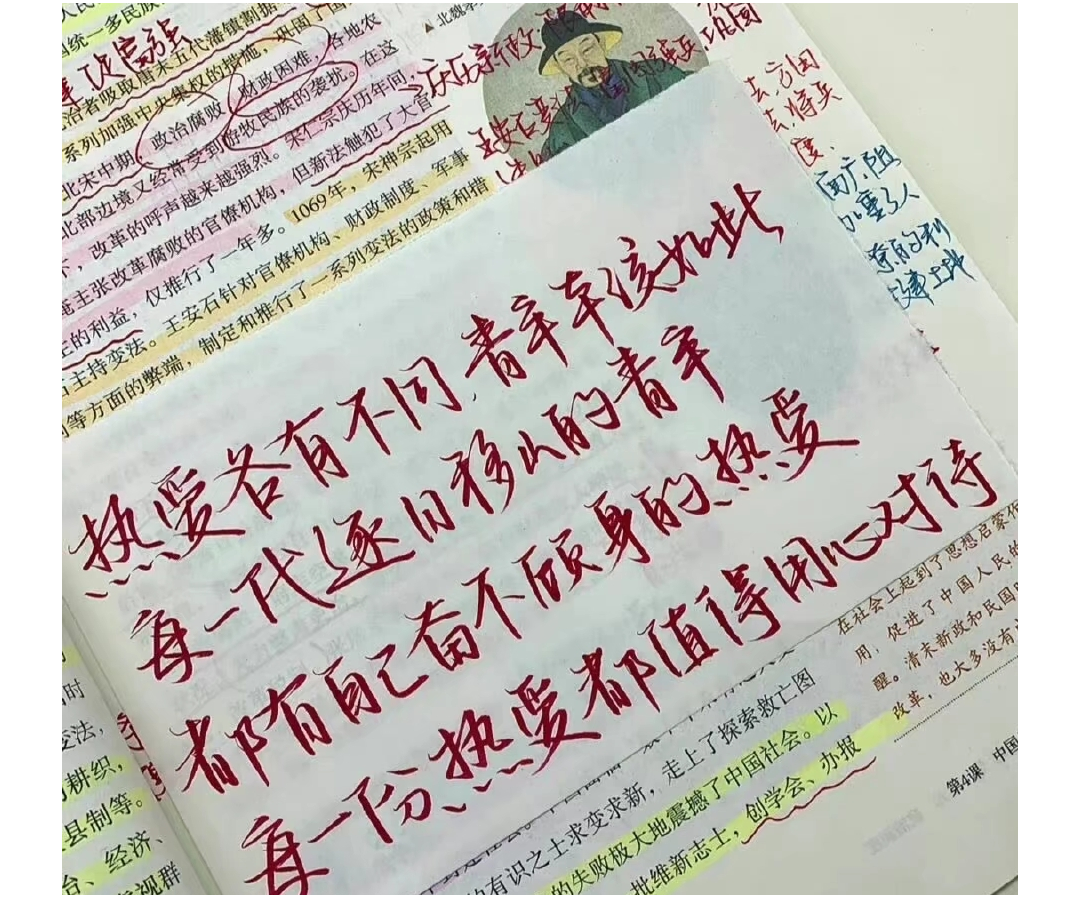 统一多民族
治者吸取唐末五代藩镇割据
系列加强中央集权的措施，巩固了国
北宋中期，政治腐败，财政困难，各地农
北部边境又经常受到游牧民族的袭扰。在这
，改革的呼声越来越强烈。宋仁宗庆历年间，
主张改革腐败的官僚机构，但新法触犯了大官
的利益，仅推行了一年多。1069年，宋神宗起用
主持变法。王安石针对官僚机构、财政制度、军事
等方面的弊端，制定和推行了一系列变法的政策和措
庆历新政
王安石变法
热爱各有不同，青年本该如此
每一代逐日移山的青年
都有自己奋不顾身的热爱
每一份热爱都值得用心对待
在社会上起到了思想启蒙作
用，促进了中国人民的
醒。清末新政和民国
改革，也大多没有
时
变法，
耕织，
县制等。
台、经济、
视群
有识之士求变求新，走上了探索救亡图
的失败极大地震撼了中国社会。以
批维新志士，创学会、办报
第4课 中国